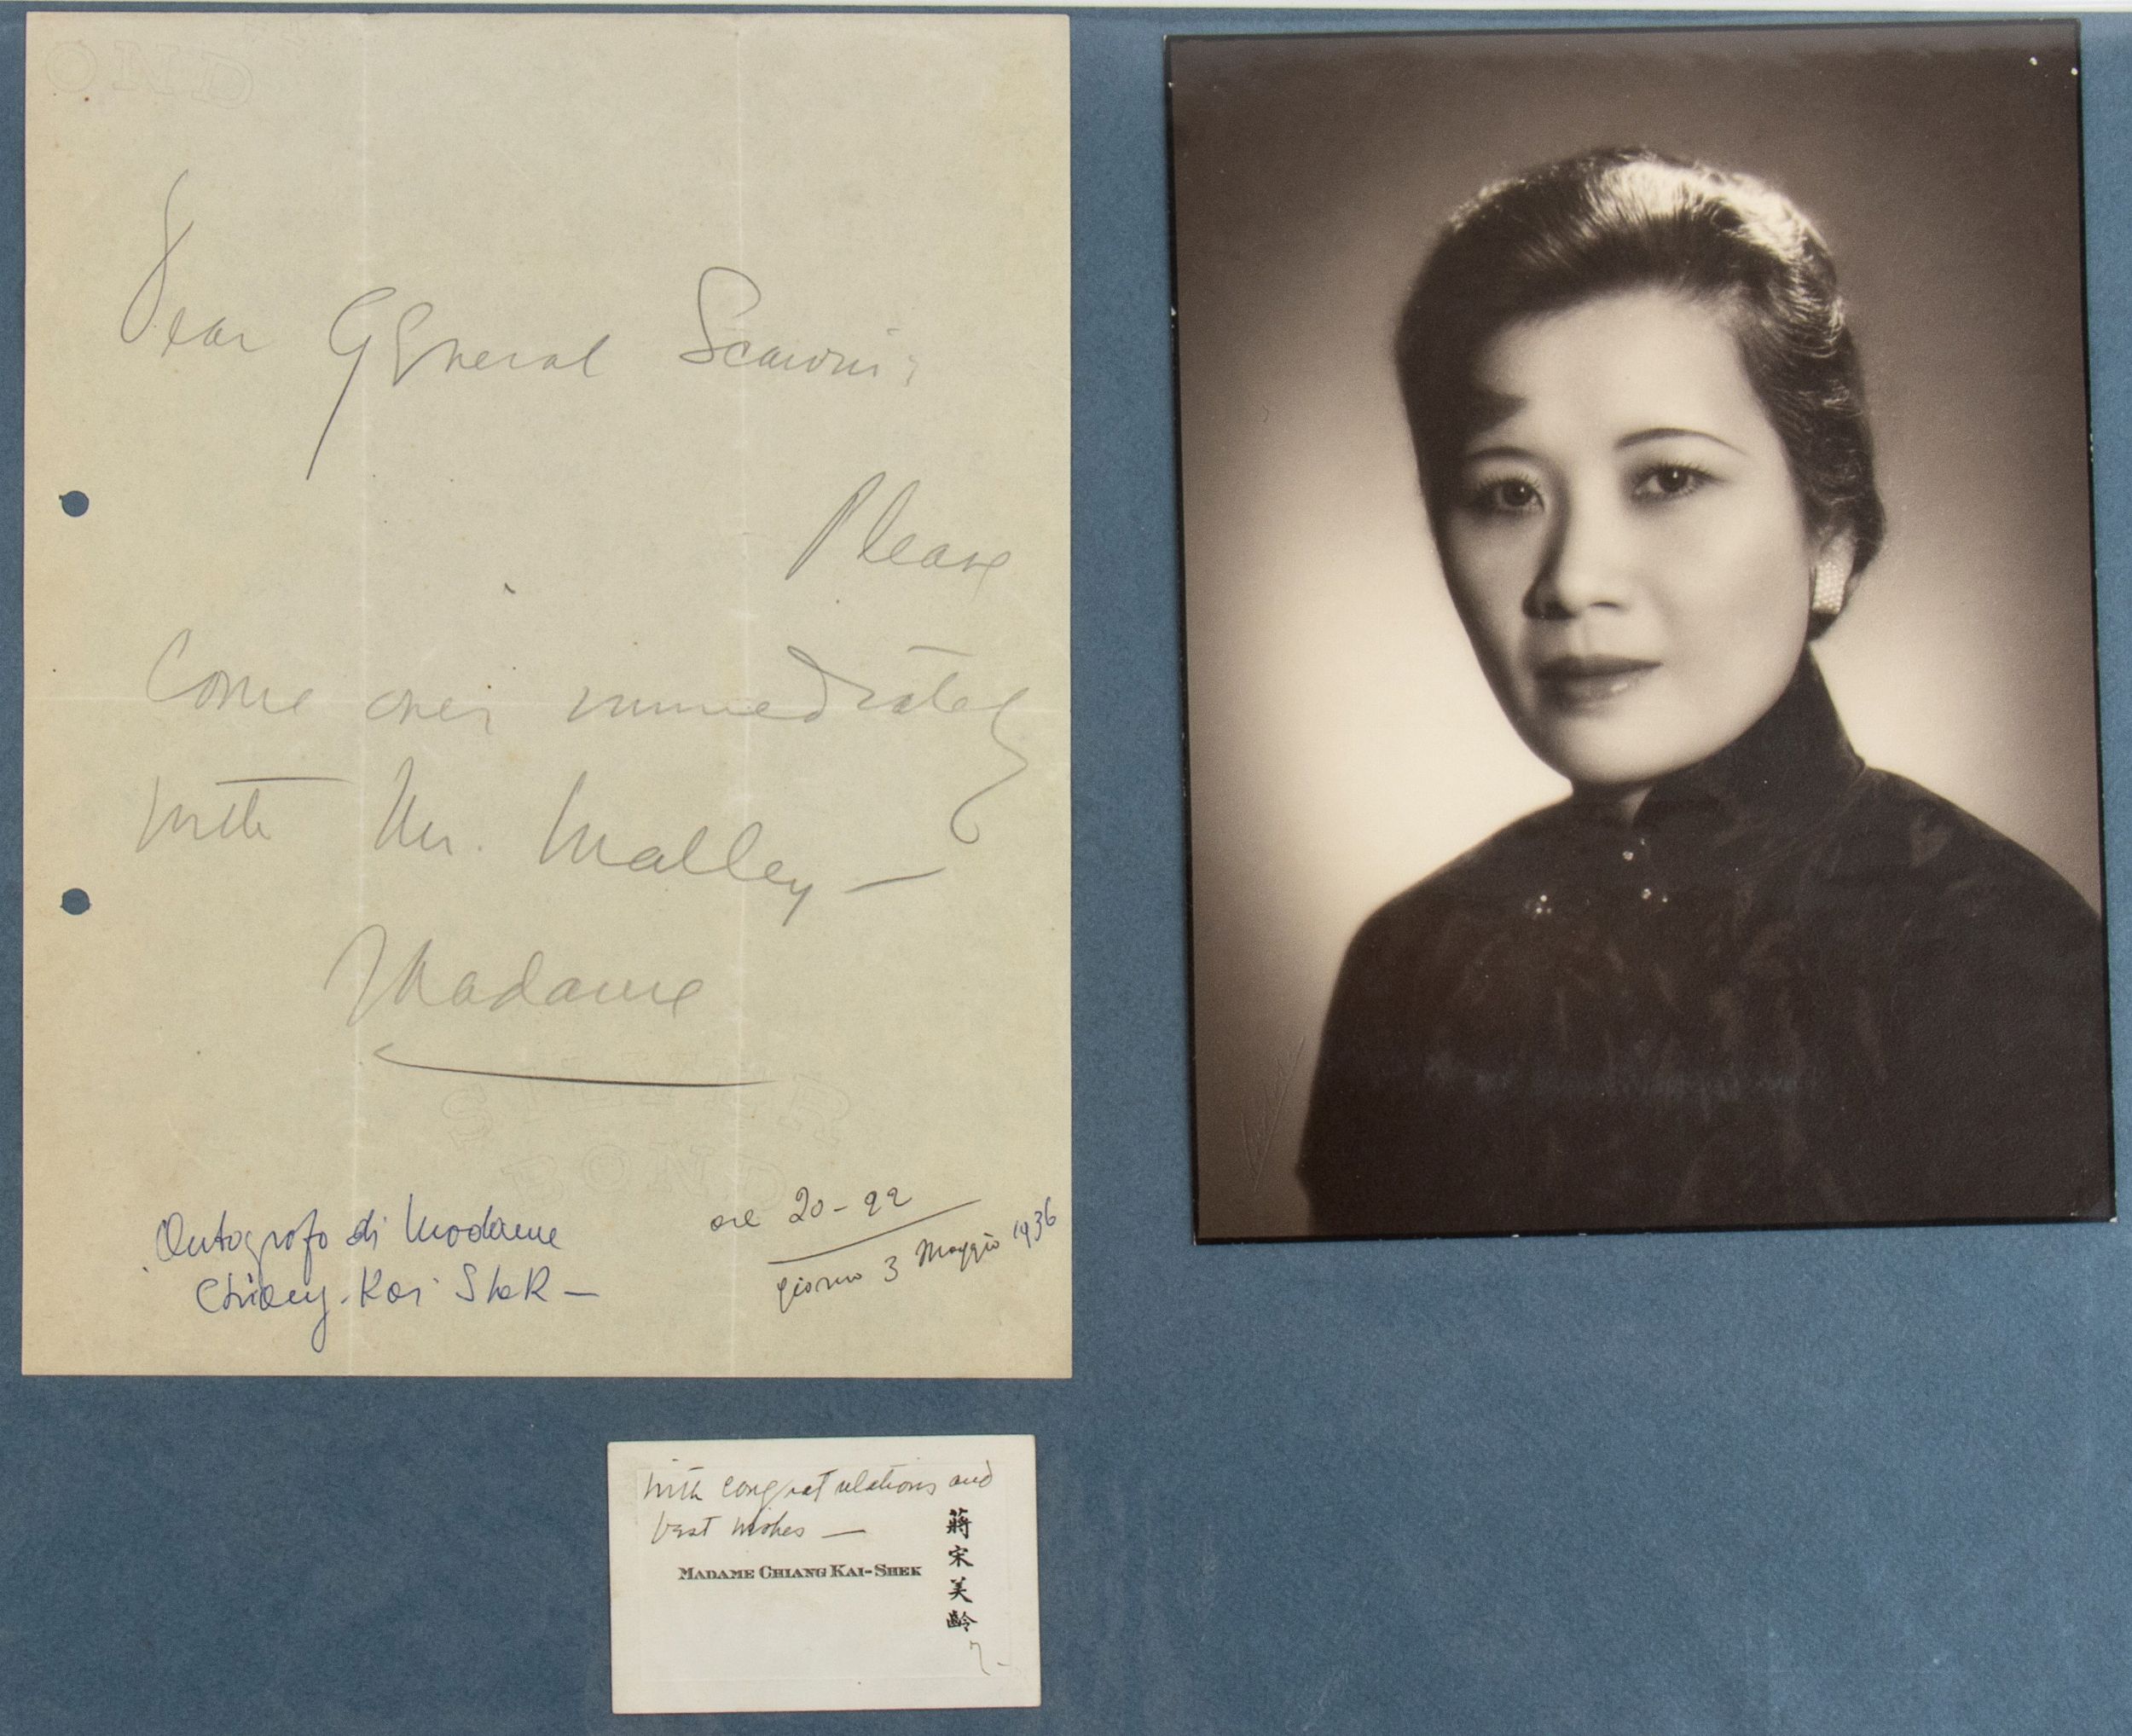 OND
Dear General Scaroni:
Please
Come over immediately
with Mr. Malley —
Madame
SILVER
BOND
Autografo di Madame
Chiang-Kai Shek —
ore 20-22
giorno 3 Maggio 1936
with congratulations and
best wishes —
MADAME CHIANG KAI-SHEK
蔣宋美齡